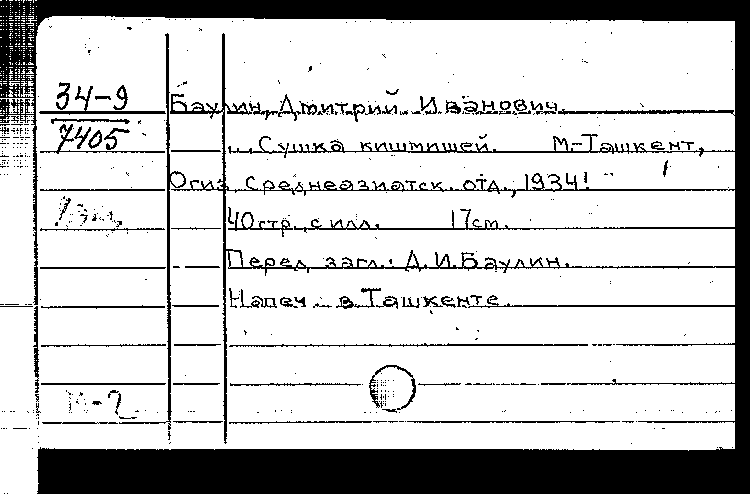 34-9
7405
Баулин, Дмитрий Иванович.
... Сушка кишмишей. М.-Ташкент,
Огиз, Среднеазиатск. отд., 1934!
40 стр. с илл. 17 см.
Перед загл.: Д.И.Баулин.
Напеч. в Ташкенте.
М-2